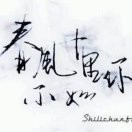 春風十里
不如你
Shilichunf